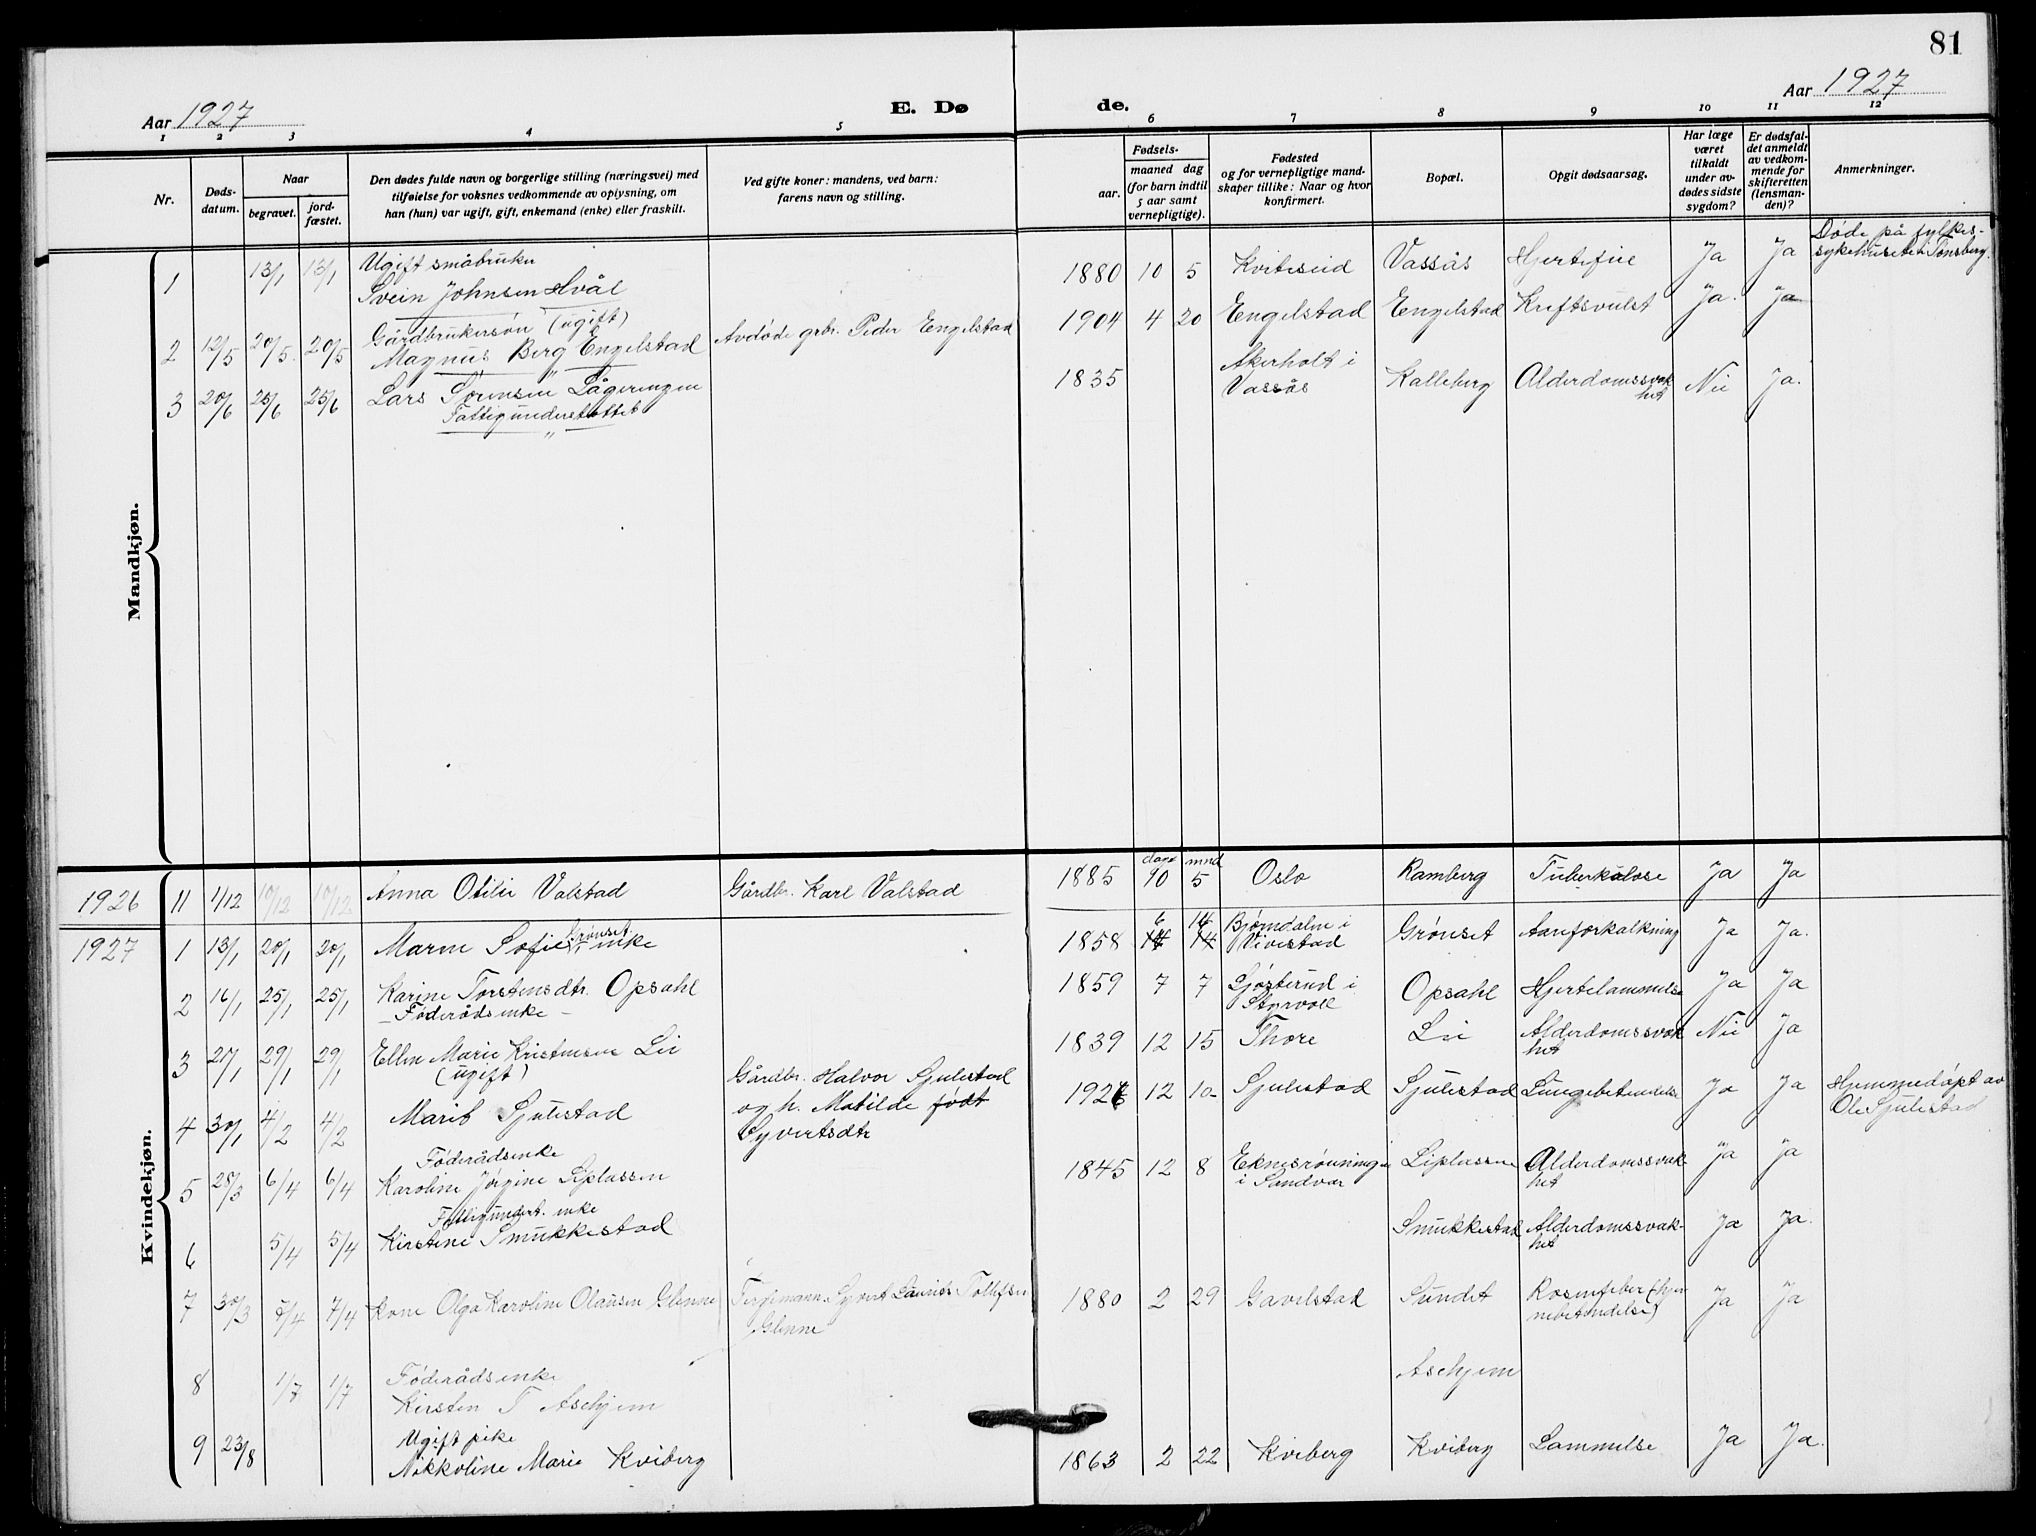 81
Aar 1927
E. Dø
de.
Aar 1927
1 2 3 4 5 6 7 8 9 10 11 12
Nr.
Døds-
datum.
Naar
begravet.
jord-
fæstet.
Den dødes fulde navn og borgerlige stilling (næringsvei) med
tilføielse for voksnes vedkommende av oplysning, om
han (hun) var ugift, gift, enkemand (enke) eller fraskilt.
Ved gifte koner: mandens, ved barn:
farens navn og stilling.
Fødsels-
aar.
maaned dag
(for barn indtil
5 aar samt
vernepligtige).
Fødested
og for vernepligtige mand-
skaper tillike: Naar og hvor
konfirmert.
Bopæl.
Opgit dødsaarsag.
Har læge
været
tilkaldt
under av-
dødes sidste
sygdom?
Er dødsfal-
det anmeldt
av vedkom-
mende for
skifteretten
(lensman-
den)?
Anmerkninger.
Mandkjøn.
Ugift småbruker
1 13/1 13/1 Svein Johnsen Hvål 1880 10 5 Kviteseid Vassås Hjertefeil Ja Ja Døde på fylkes-
sykehuset i Tønsberg.
Gårdbrukersøn (ugift)
2 12/5 20/5 20/5 Magnus Berg Engelstad Avdøde gbr. Peder Engelstad 1904 4 20 Engelstad Engelstad Kreftsvulst Ja. Ja
3 20/6 25/6 25/6 Lars Sørensen Lågeringen 1835 Akerholt i
Vassås Kalleberg Alderdomssvak
het Nei Ja.
Fattigunderstøttet
Kvindekjøn.
dage mnd
1926 11 1/12 10/12 10/12 Anna Otilie Valstad Gårdbr. Karl Valstad 1885 90 5 Oslo Ramberg Tuberkulose Ja Ja
Grønset
1927 1 13/1 20/1 20/1 Maren Sofie enke 1858 6 14 Bjørndalen i
Vivestad Grønset Aareforkalkning Ja Ja.
2 16/1 25/1 25/1 Karine Torstensdtr. Opsahl 1859 7 7 Gjøsterud i
Styrvoll Opsahl Hjertelammelse Ja Ja
- Føderådsenke -
3 21/1 29/1 29/1 Ellen Marie Kristensen Lie 1839 12 15 Thore Lie Alderdomssvak
het Nei Ja
(ugift)
4 30/1 4/2 4/2 Marit Sjulestad Gårdbr. Halvor Sjulestad
og h. Matilde født
Syvertsdtr 1926 12 10 Sjulestad Sjulestad Lungebetendelse Ja Ja Hjemmedøpt av
Ole Sjulestad
Føderådsenke
5 28/3 6/4 6/4 Karoline Jørgine Liplassen 1845 12 8 Eknesrønningen
i Sandvær Liplassen Alderdomssvak-
het Ja Ja
Fattigunderst. enke
6 5/4 5/4 Kirstine Smukkestad Smukkestad Alderdomssvak-
het Ja Ja.
7 30/3 7/4 7/4 Kone Olga Karoline Olausen Glenne Syvert Laurits Tollefsen
Glenne 1880 2 29 Gavelstad Sundet Rosenfeber (hjer
nebetændelse) Ja Ja
Føderådsenke
8 1/7 1/7 Kirsten T Asehjem Asehjem
Ugift pike
9 23/8 Nikkoline Marie Kviberg 1863 2 22 Kviberg Kviberg Lammelse Ja Ja.